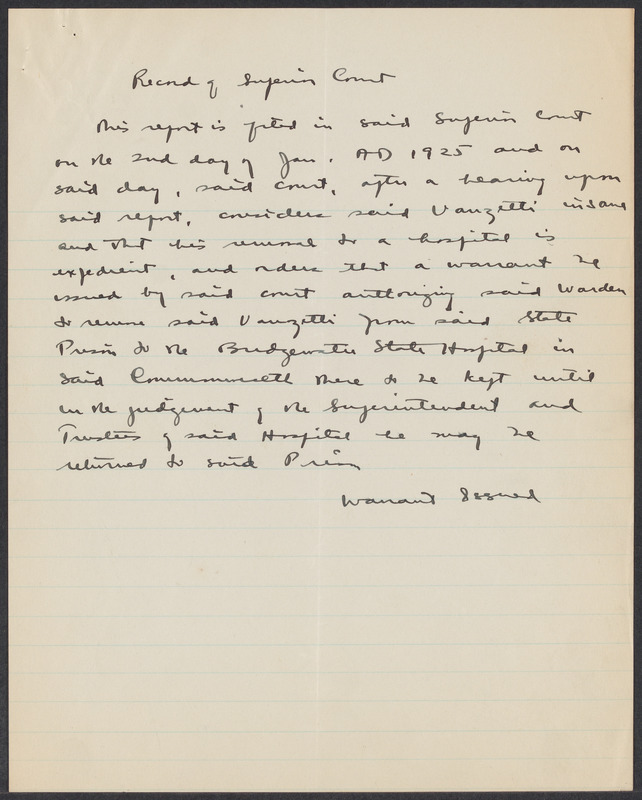 Record of Superior Court
This report is filed in said Superior Court
on the 2nd day of Jan. AD 1925 and on
said day, said court, after a hearing upon
said report, considers said Vanzetti insane
and that his removal to a hospital is
expedient, and orders that a warrant be
issued by said court authorizing said Warden
to remove said Vanzetti from said State
Prison to the Bridgewater State Hospital in
said Commonwealth there to be kept until
in the judgement of the Superintendent and
Trustees of said Hospital he may be
returned to said Prison
Warrant Issued